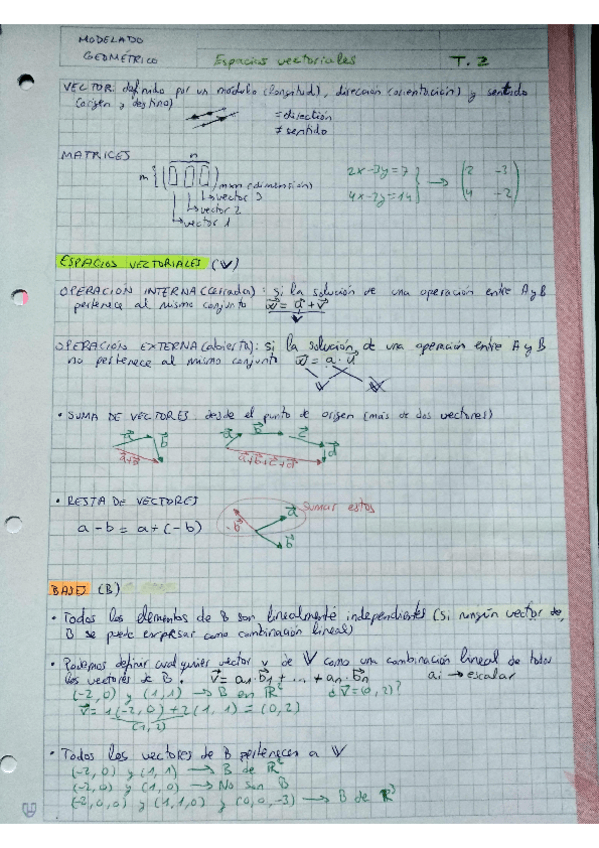 MODELADO
GEOMÉTRICO
Espacios vectoriales
T. 2
VECTOR: definido por un módulo (longitud), dirección (orientación) y sentido
(origen y destino)
= dirección
≠ sentido
MATRICES
n
m
mxn (dimensión)
vector 3
vector 2
vector 1
2x-3y=7
4x-2y=14
2 -3
4 -2
ESPACIOS VECTORIALES (V)
OPERACIÓN INTERNA (cerrada): si la solución de una operación entre A y B
pertenece al mismo conjunto w = u + v
V
OPERACIÓN EXTERNA (abierta): si la solución de una operación entre A y B
no pertenece al mismo conjunto w = a · u
• SUMA DE VECTORES: desde el punto de origen (más de dos vectores)
a b
a+b
a b c d
a+b+c+d
• RESTA DE VECTORES
a-b = a+(-b)
-b a sumar estos
b
BASES (B)
• Todos los elementos de B son linealmente independientes (si ningún vector de
B se puede expresar como combinación lineal)
• Podemos definir cualquier vector v de V como una combinación lineal de todos
los vectores de B: v = a1·b1 + ... + an·bn ai → escalar
(-2,0) y (1,1) → B en R² ¿v=(0,2)?
v = 1(-2,0) + 2(1,1) = (0,2)
(1,2)
• Todos los vectores de B pertenecen a V
(-2,0) y (1,1) → B de R²
(-2,0) y (1,0) → No son B
(-2,0,0) y (1,1,0) y (0,0,-3) → B de R³